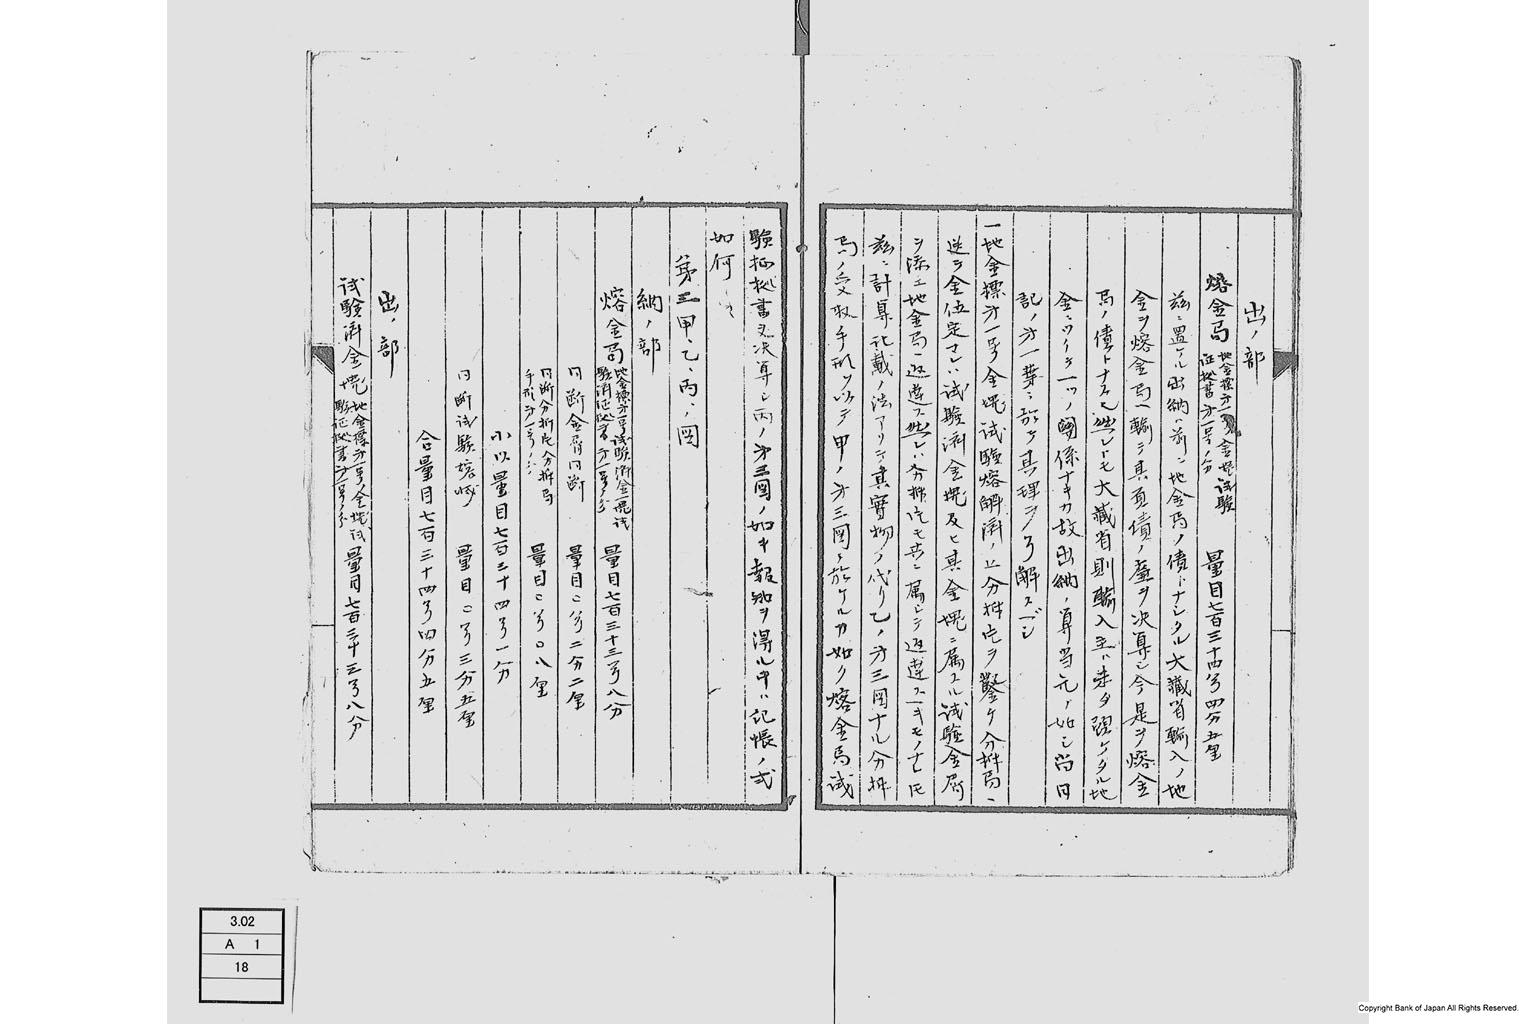 出ノ部
熔金局 地金標才一号金塊試験証拠書才一号ノ分 量目七百三十四匁四分五厘
茲ニ置ケル出納ハ前ニ地金局ノ債トナシタル大蔵省輸入ノ地
金ヲ熔金局ヘ輸シ其負債ノ童ヲ決算シ今是ヲ熔金
局ノ債トナス也然レトモ大蔵省則輸入主ハ未タ預ケタル地
金ニツイテ一ツノ関係ナキカ故出納ノ算当元ノ如シ尚日
記ノ才一葉ニ於テ其理ヲ了解スベシ
一地金標才一号金塊試験熔解済ノ上分析片ヲ鑿ケ分析局ヘ
送ラ金位定マレハ試験済金塊及ヒ其金塊ニ属スル試験金屑
ヲ添エ地金局ヘ返達ス然レハ分析片モ共ニ属シテ返達スヘキモノナレ氏
茲ニ計算記載ノ法アリテ其実物ノ代リ乙ノ才三図ナル分析
局ノ受取手形ヲ以テ甲ノ才三図ニ於ケルカ如ク熔金局試
験証拠書又決算シ丙ノ才三図ノ如キ報知ヲ得ル中ハ記帳ノ式
如何
第三甲、乙、丙ノ図
納ノ部
熔金局 地金標才一号試験済金塊試験済証拠書才一号ノ分 量目七百三十三匁八分
同断金屑同断 量目〇匁二分二厘
同断分析片分析局手形才一号ノ分 量目〇匁〇八厘
小以量目七百三十四匁一分
同断試験熔減 量目〇匁三分五厘
合量目七百三十四匁四分五厘
出ノ部
試験済金塊 地金標才一号ノ金塊試験証拠書才一号ノ分 量目七百三十三匁八分
3.02
A 1
18
Copyright Bank of Japan All Rights Reserved.